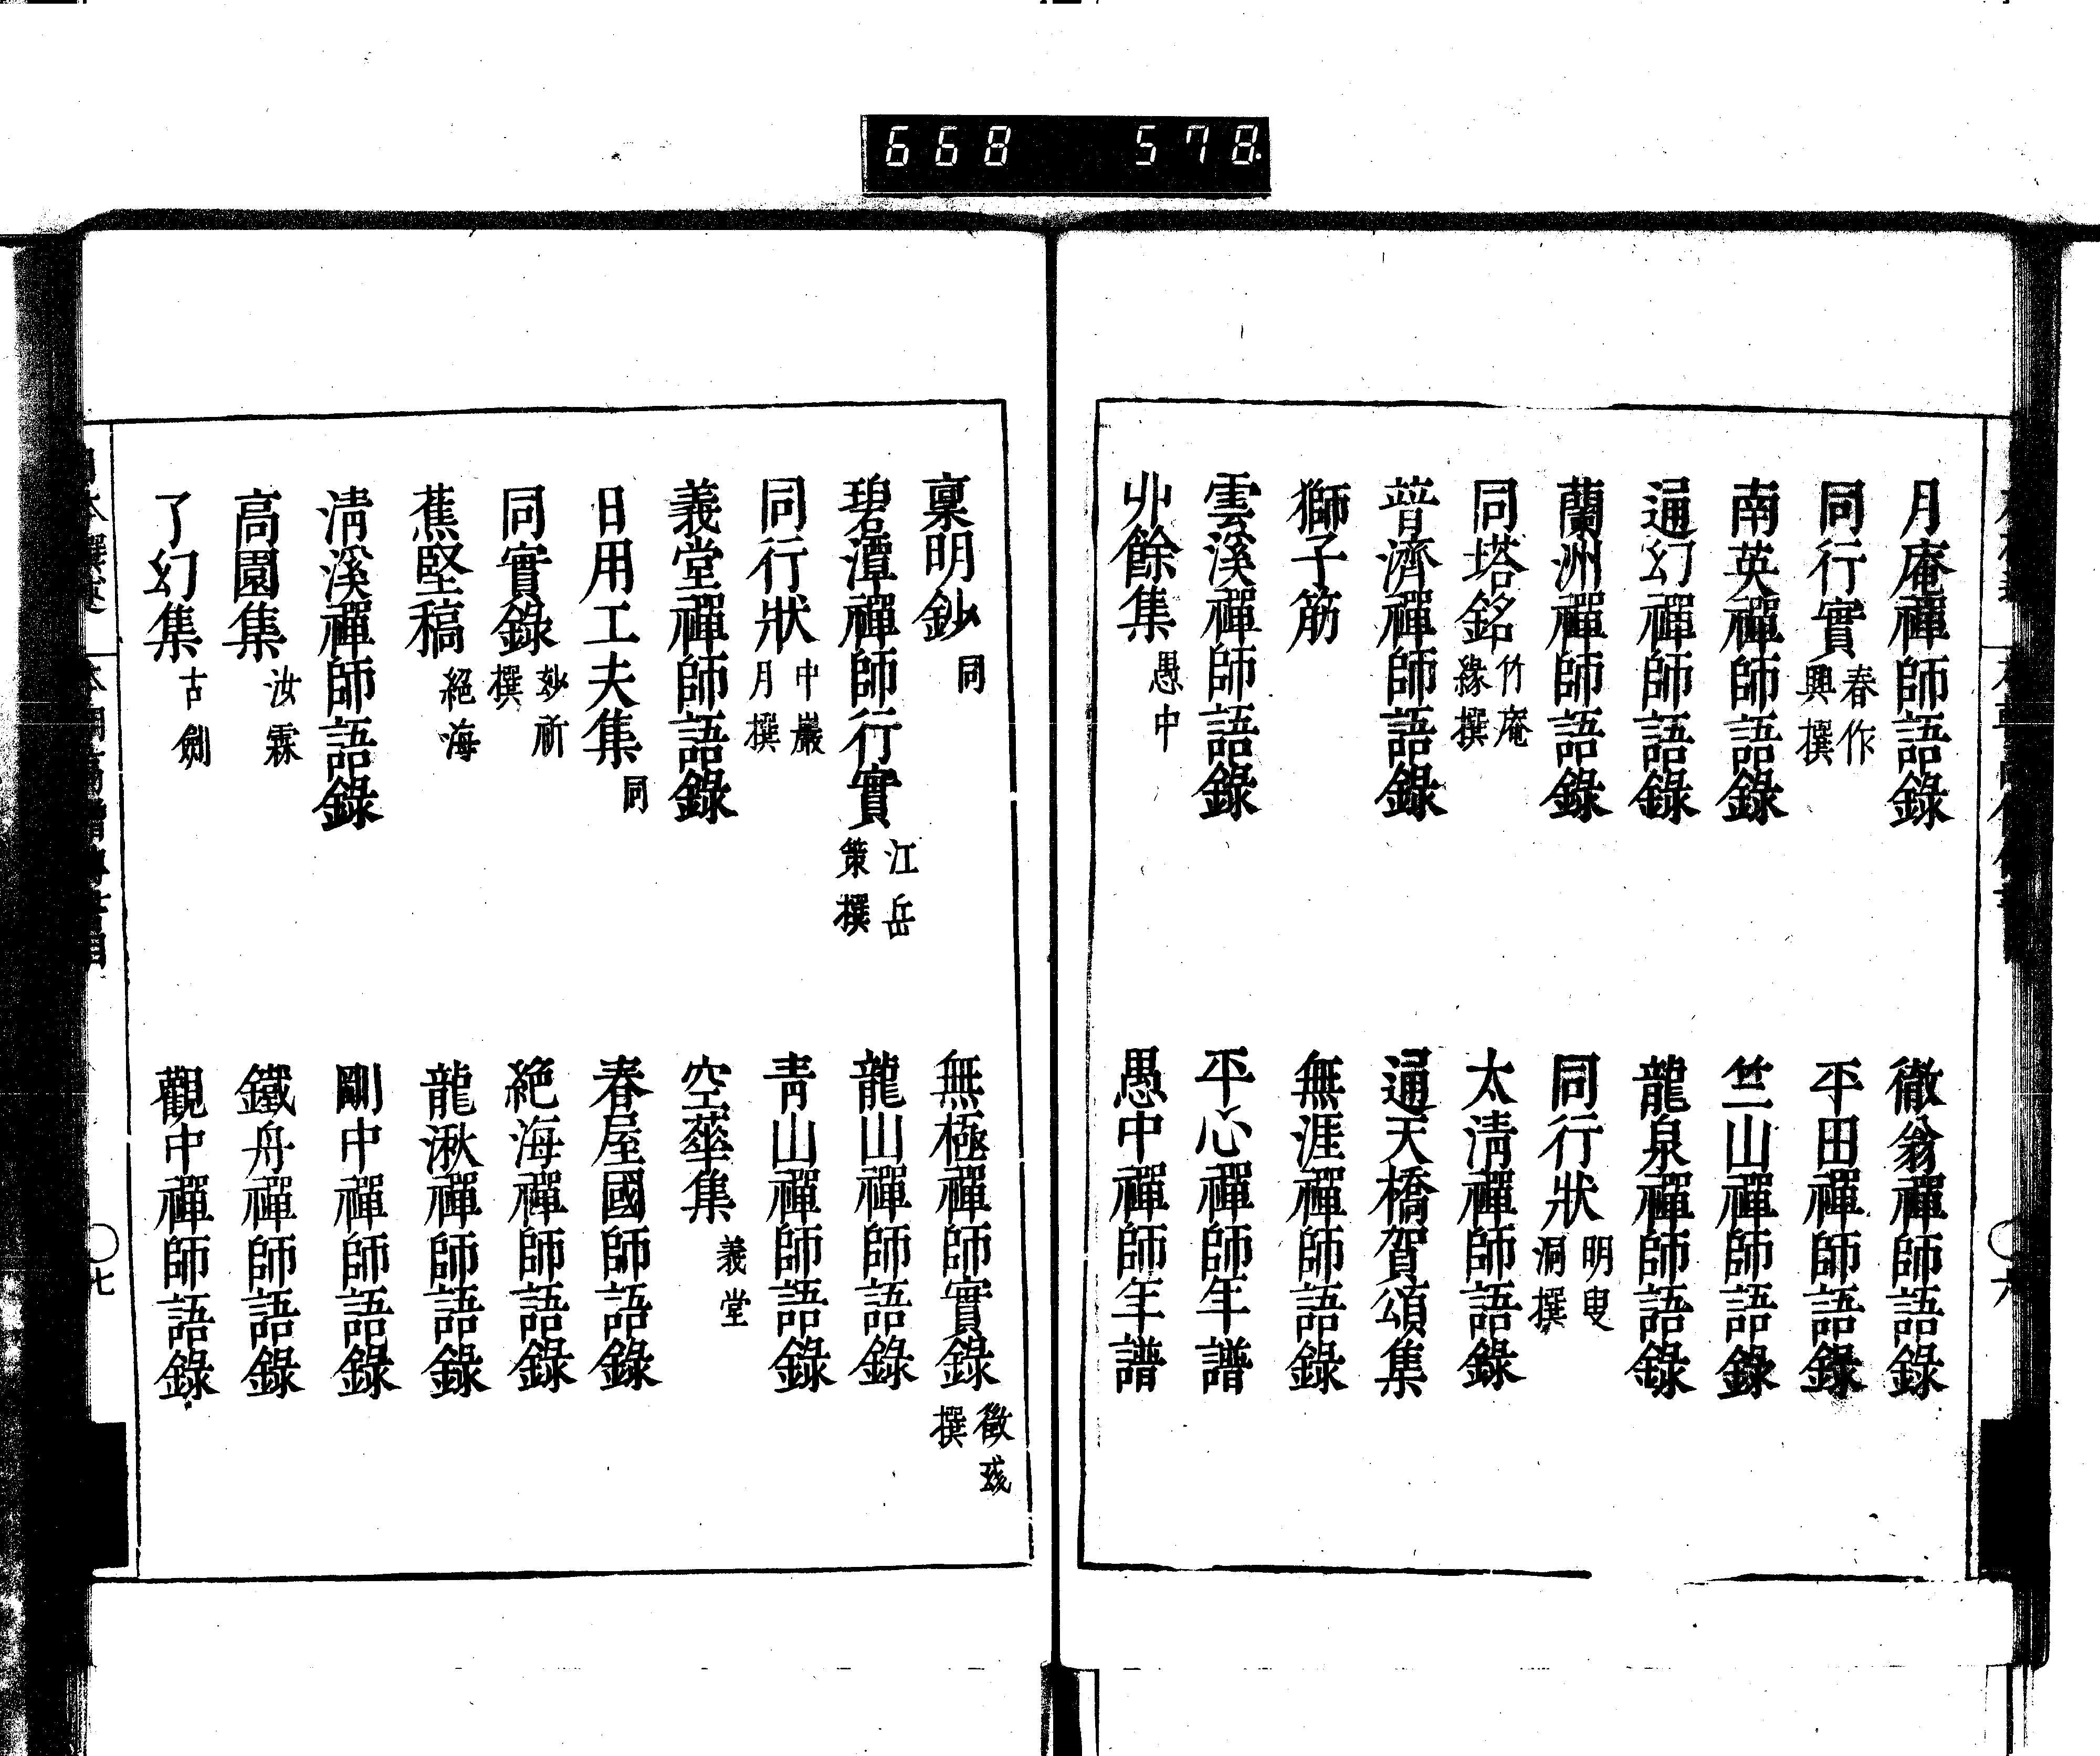 668 578.
月庵禪師語錄 徹翁禪師語錄
同行實 春作興撰 平田禪師語錄
南英禪師語錄 竺山禪師語錄
通幻禪師語錄 龍泉禪師語錄
蘭洲禪師語錄 同行狀 明叟洞撰
同塔銘 竹庵緣撰 太清禪師語錄
普濟禪師語錄 通天橋賀頌集
獅子筋 無涯禪師語錄
雲溪禪師語錄 平心禪師年譜
丱餘集 愚中 愚中禪師年譜
稟明鈔 同 無極禪師實錄 徵撰
碧潭禪師行實 江岳策撰 龍山禪師語錄
同行狀 中巖月撰 青山禪師語錄
義堂禪師語錄 空華集 義堂
日用工夫集 同 春屋國師語錄
同實錄 妙祈撰 絕海禪師語錄
蕉堅稿 絕海 龍湫禪師語錄
清溪禪師語錄 剛中禪師語錄
高園集 汝霖 鐵舟禪師語錄
了幻集 古劍 觀中禪師語錄
七